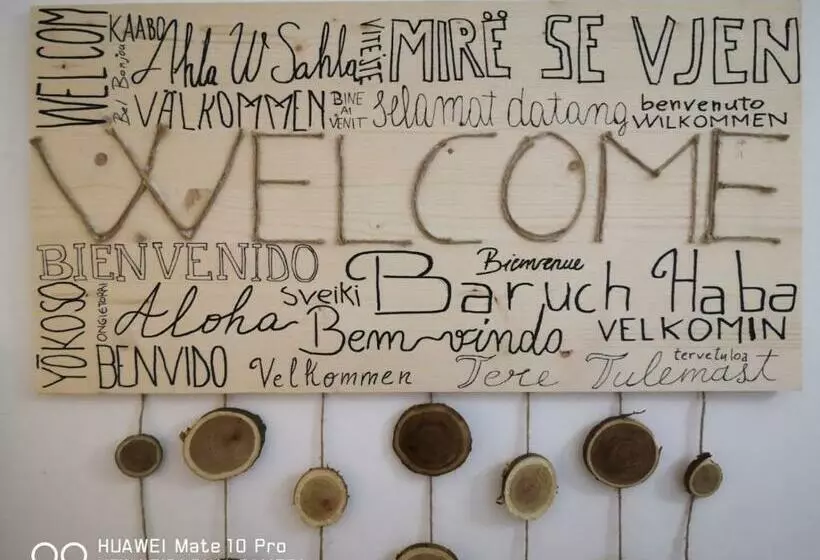 WELCOM
KAABO
Bel Bonjou
Ahla W Sahla
VITEJTE
MIRË SE VJEN
VÄLKOMMEN
BINE
AI
VENIT
Selamat datang
benvenuto
WILKOMMEN
WELCOME
BIENVENIDO
Bienvenue
Baruch Haba
YŌKOSO
ONGIETORRI
Aloha
Sveiki
Bem-vindo
VELKOMIN
BENVIDO
Velkommen
Tere Tulemast
tervetuloa
HUAWEI Mate 10 Pro